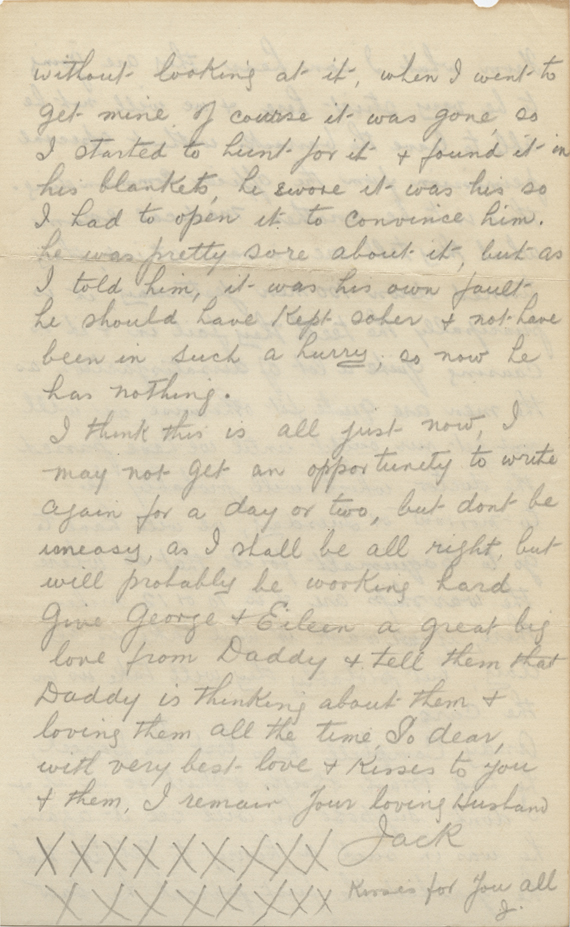 without looking at it, when I went to
get mine, of course it was gone, so
I started to hunt for it + found it in
his blankets, he swore it was his so
I had to open it to convince him.
he was pretty sore about it, but as
I told him, it was his own fault
he should have kept sober + not have
been in such a hurry. so now he
has nothing.
I think this is all just now, I
may not get an opportunity to write
again for a day or two, but dont be
uneasy, as I shall be all right, but
will probably be working hard
Give George + Eileen a great big
love from Daddy + tell them that
Daddy is thinking about them +
loving them all the time, So dear,
with very best love + Kisses to you
+ them, I remain Your loving Husband
Jack
XXXXXXXXX
XXXXXXXXX Kisses for you all
J.